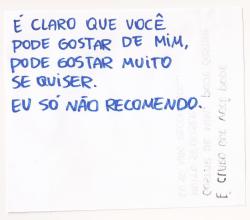 É CLARO QUE VOCÊ
PODE GOSTAR DE MIM,
PODE GOSTAR MUITO
SE QUISER.
EU SÓ NÃO RECOMENDO.